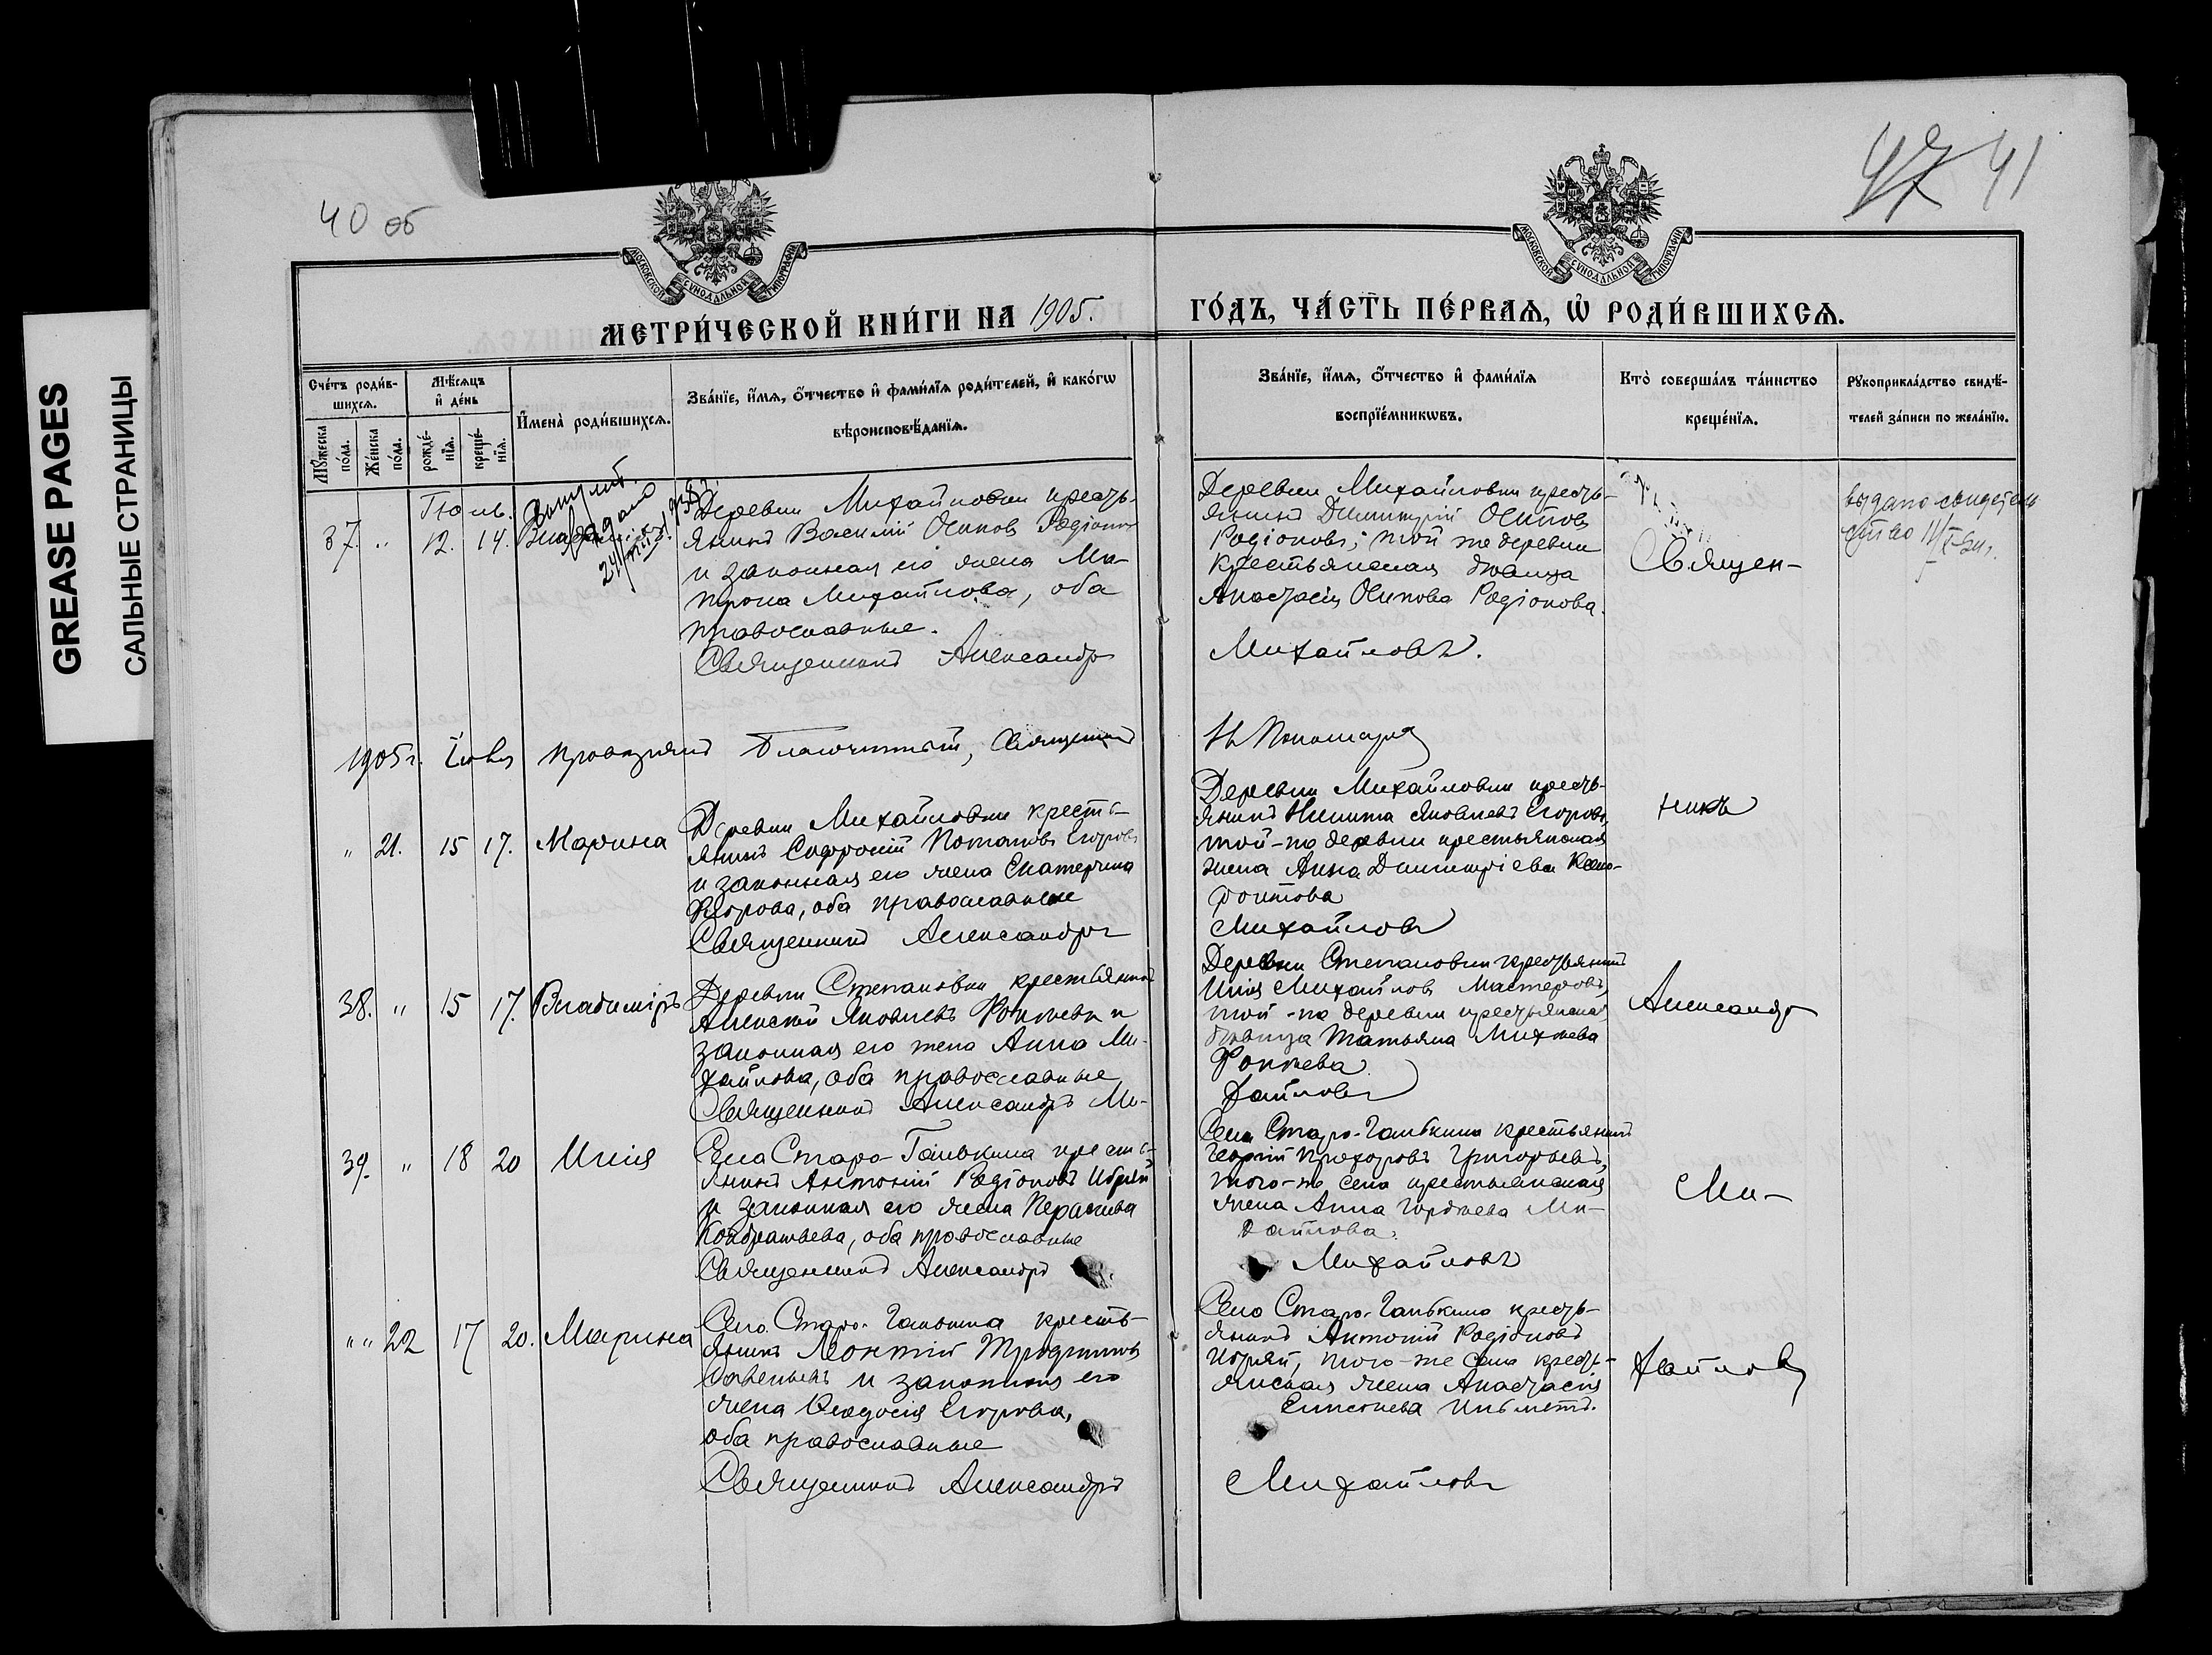 GREASE PAGES
САЛЬНЫЕ СТРАНИЦЫ
40 об
47 41
МОСКОВСКОЙ СѴНОДАЛЬНОЙ ТИПОГРАФІИ
МОСКОВСКОЙ СѴНОДАЛЬНОЙ ТИПОГРАФІИ
МЕТРИ́ЧЕСКОЙ КНИ́ГИ НА 1905.
ГО́ДЪ, ЧА́СТЬ ПЕ́РВАѦ, Ѡ҆ РОДИ́ВШИХСѦ.
Счéтъ роди́в-
шихсѧ.
Мꙋ́жеска
по́ла.
Же́нска
по́ла.
Мѣ́сѧцъ
и҆ де́нь
рожде́-
нїѧ.
креще́-
нїѧ.
И҆мена̀ роди́вшихсѧ.
Зва́нїе, и҆́мѧ, ѻ҆́тчество и҆ фами́лїѧ роди́телей, и҆ како́гѡ
вѣроисповѣ́данїѧ.
Зва́нїе, и҆́мѧ, ѻ҆́тчество и҆ фами́лїѧ
воспрїе́мникѡвъ.
Кто̀ соверша́лъ та́инство
креще́нїѧ.
Рꙋкоприкла́дство свидѣ́-
телей за́писи по жела́нїю.
Іюль.
37. " 12. 14.
Деревни Михайловки кресть-
янинъ Василій Осиповъ Родіоновъ
и законная его жена Ма-
трона Михайлова, оба
православные.
Священникъ Александръ
Деревни Михайловки кресть-
янинъ Димитрій Осиповъ
Родіоновъ; той же деревни
крестьянская дѣвица
Анастасія Осипова Родіонова.
Михайловъ.
Священ-
выдано свидетель
ство
1905 г. Благочинный, Священникъ
" 21. 15 17. Марина
Деревни Михайловки кресть-
янинъ Софроній Потаповъ Егоровъ
и законная его жена Екатерина
Егорова, оба православные
Священникъ Александръ
Деревни Михайловки кресть-
янинъ Никита Яковлевъ Егоровъ,
той-же деревни крестьянская
жена Анна Димитріева Ксено-
фонтова
Михайловъ
никъ
38. " 15 17. Владиміръ
Деревни Степановки крестьянинъ
Алексѣй Яковлевъ Фокѣевъ и
законная его жена Анна Ми-
хайлова, оба православные
Священникъ Александръ Ми-
Деревни Степановки крестьянинъ
Илія Михайловъ Мастеровъ,
той-же деревни крестьянская
дѣвица Татьяна Михѣева
Фокѣева
хайловъ
Александръ
39. " 18 20 Илія
Села Старо-Ганькина кресть-
янинъ Антоній Родіоновъ
и законная его жена Параскева
Кондратьева, оба православные
Священникъ Александръ
Села Старо-Ганькина крестьянинъ
Георгій Прохоровъ Григорьевъ,
того-же села крестьянская
жена Анна Гордѣева Ми-
хайлова.
Михайловъ
Ми-
" " 22 17 20. Марина
Село Старо-Ганькина кресть-
янинъ Леонтій
Савельевъ и законная его
жена Ѳеодосія Егорова,
оба православные
Священникъ Александръ
Село Старо-Ганькино кресть-
янинъ Антоній Родіоновъ
того-же села кресть-
янская жена Анастасія
Михайловъ
хайловъ